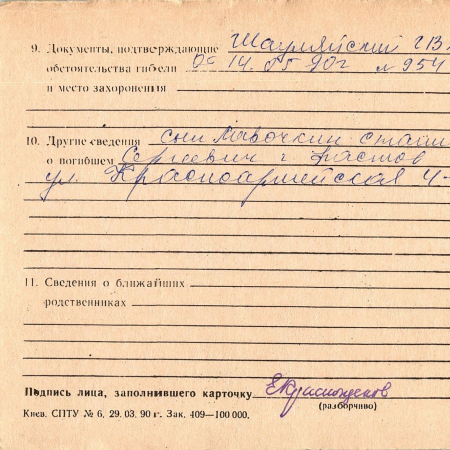 9. Документы, подтверждающие Шаумяйский ГВК
обстоятельства гибели от 14.05 90г №954
и место захоронения
10. Другие сведения сын Лавочкин
о погибшем Сергеевич г. Фастов
ул. Красноармейская 4-
11. Сведения о ближайших
родственниках
Подпись лица, заполнившего карточку
(разборчиво)
Киев. СПТУ № 6, 29. 03. 90 г. Зак. 409—100 000.